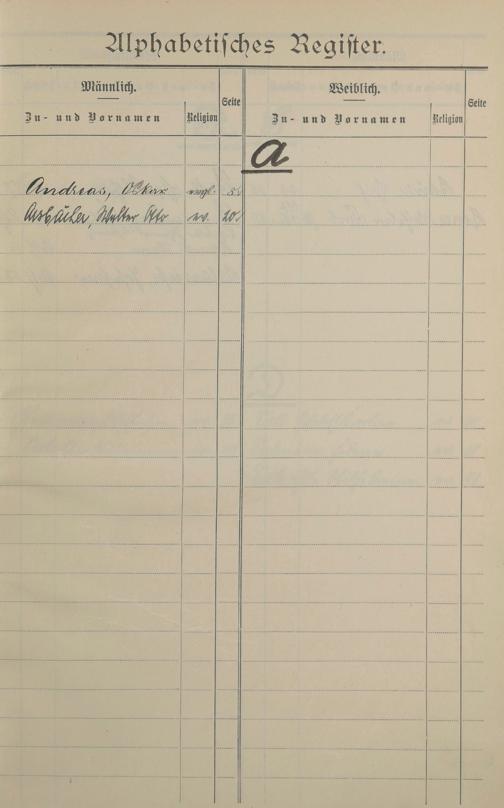 Alphabetisches Register.
Männlich. Seite Weiblich. Seite
Zu- und Vornamen Religion Zu- und Vornamen Religion
a
Andreas, Oskar evgl.
Walter Otto ev. 20